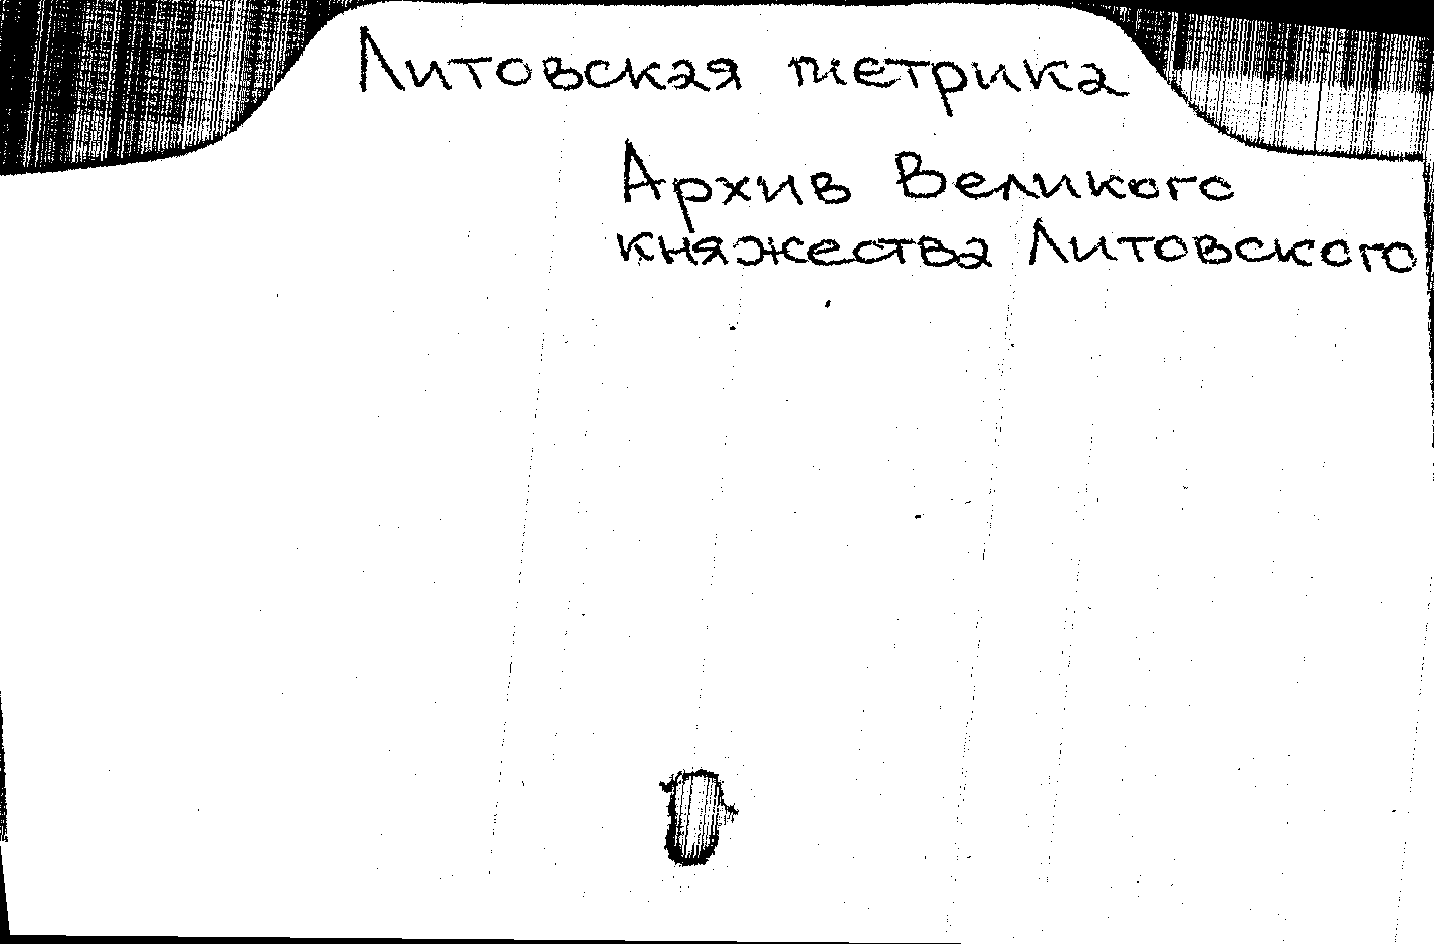 Литовская метрика
Архив Великого
княжества Литовского